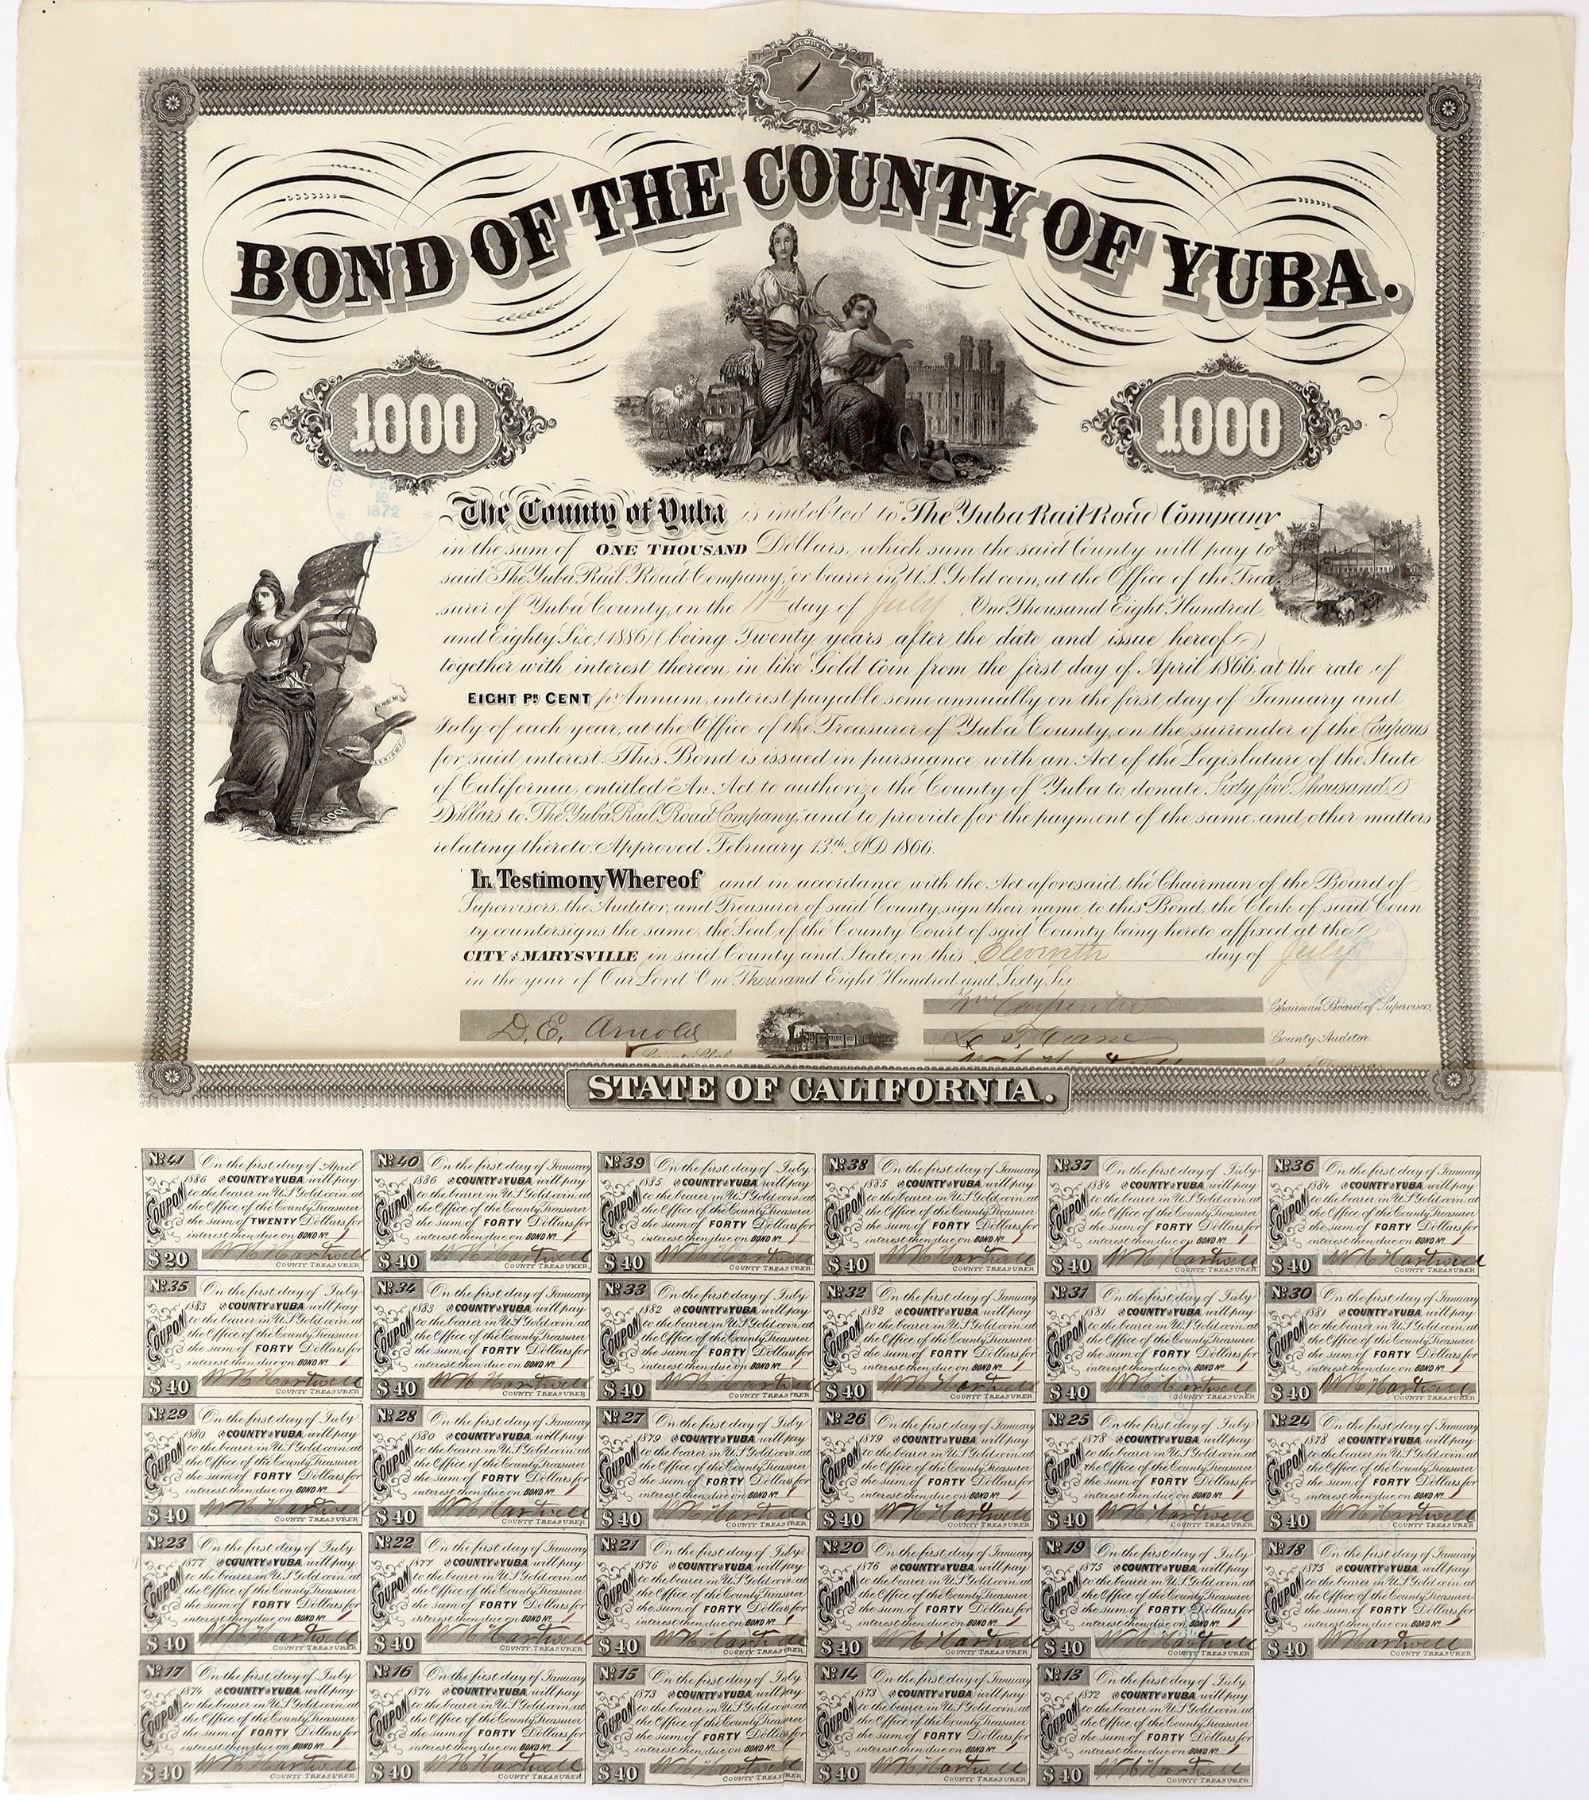 NUMBER
1
BOND OF THE COUNTY OF YUBA.
1000
1000
16
1872
The County of Yuba is indebted to "The Yuba Rail Road Company
in the sum of ONE THOUSAND Dollars, which sum the said County will pay to
said "The Yuba Rail Road Company," or bearer in U.S. Gold coin, at the Office of the Trea-
surer of Yuba County, on the 11th day of July One Thousand Eight Hundred
and Eighty Six, (1886) (being Twenty years after the date and issue hereof)
together with interest thereon, in like Gold Coin from the first day of April 1866, at the rate of
EIGHT PR CENT pr Annum, interest payable semi annually on the first day of January and
July of each year, at the Office of the Treasurer of Yuba County, on the surrender of the Coupons
for said interest. This Bond is issued in pursuance with an Act of the Legislature of the State
of California, entitled "An Act to authorize the County of Yuba to donate Sixty five Thousand
Dollars to "The Yuba Rail Road Company," and to provide for the payment of the same, and other matters
relating thereto. Approved February 13th A.D. 1866.
In Testimony Whereof and in accordance with the Act aforesaid, the Chairman of the Board of
Supervisors, the Auditor, and Treasurer of said County, sign their name to this Bond, the Clerk of said Coun
ty countersigns the same, the Seal of the County Court of said County being hereto affixed at the
CITY of MARYSVILLE in said County and State, on this Eleventh day of July
in the year of Our Lord One Thousand Eight Hundred and Sixty Six
Wm Carpenter Chairman Board of Supervisors
D. E. Arnold
County Auditor
STATE OF CALIFORNIA.
No. 41 On the first day of April
1886 COUNTY of YUBA will pay
COUPON to the bearer in U.S. Gold coin, at
the Office of the County Treasurer
the sum of TWENTY Dollars for
interest then due on BOND No. 1
$20 W H Hartwell
COUNTY TREASURER
No. 40 On the first day of January
1886 COUNTY of YUBA will pay
COUPON to the bearer in U.S. Gold coin, at
the Office of the County Treasurer
the sum of FORTY Dollars for
interest then due on BOND No. 1
$40 W H Hartwell
COUNTY TREASURER
No. 39 On the first day of July
1885 COUNTY of YUBA will pay
COUPON to the bearer in U.S. Gold coin, at
the Office of the County Treasurer
the sum of FORTY Dollars for
interest then due on BOND No. 1
$40 W H Hartwell
COUNTY TREASURER
No. 38 On the first day of January
1885 COUNTY of YUBA will pay
COUPON to the bearer in U.S. Gold coin, at
the Office of the County Treasurer
the sum of FORTY Dollars for
interest then due on BOND No. 1
$40 W H Hartwell
COUNTY TREASURER
No. 37 On the first day of July
1884 COUNTY of YUBA will pay
COUPON to the bearer in U.S. Gold coin, at
the Office of the County Treasurer
the sum of FORTY Dollars for
interest then due on BOND No. 1
$40 W H Hartwell
COUNTY TREASURER
No. 36 On the first day of January
1884 COUNTY of YUBA will pay
COUPON to the bearer in U.S. Gold coin, at
the Office of the County Treasurer
the sum of FORTY Dollars for
interest then due on BOND No. 1
$40 W H Hartwell
COUNTY TREASURER
No. 35 On the first day of July
1883 COUNTY of YUBA will pay
COUPON to the bearer in U.S. Gold coin, at
the Office of the County Treasurer
the sum of FORTY Dollars for
interest then due on BOND No. 1
$40 W H Hartwell
COUNTY TREASURER
No. 34 On the first day of January
1883 COUNTY of YUBA will pay
COUPON to the bearer in U.S. Gold coin, at
the Office of the County Treasurer
the sum of FORTY Dollars for
interest then due on BOND No. 1
$40 W H Hartwell
COUNTY TREASURER
No. 33 On the first day of July
1882 COUNTY of YUBA will pay
COUPON to the bearer in U.S. Gold coin, at
the Office of the County Treasurer
the sum of FORTY Dollars for
interest then due on BOND No. 1
$40 W H Hartwell
COUNTY TREASURER
No. 32 On the first day of January
1882 COUNTY of YUBA will pay
COUPON to the bearer in U.S. Gold coin, at
the Office of the County Treasurer
the sum of FORTY Dollars for
interest then due on BOND No. 1
$40 W H Hartwell
COUNTY TREASURER
No. 31 On the first day of July
1881 COUNTY of YUBA will pay
COUPON to the bearer in U.S. Gold coin, at
the Office of the County Treasurer
the sum of FORTY Dollars for
interest then due on BOND No. 1
$40 W H Hartwell
COUNTY TREASURER
No. 30 On the first day of January
1881 COUNTY of YUBA will pay
COUPON to the bearer in U.S. Gold coin, at
the Office of the County Treasurer
the sum of FORTY Dollars for
interest then due on BOND No. 1
$40 W H Hartwell
COUNTY TREASURER
No. 29 On the first day of July
1880 COUNTY of YUBA will pay
COUPON to the bearer in U.S. Gold coin, at
the Office of the County Treasurer
the sum of FORTY Dollars for
interest then due on BOND No. 1
$40 W H Hartwell
COUNTY TREASURER
No. 28 On the first day of January
1880 COUNTY of YUBA will pay
COUPON to the bearer in U.S. Gold coin, at
the Office of the County Treasurer
the sum of FORTY Dollars for
interest then due on BOND No. 1
$40 W H Hartwell
COUNTY TREASURER
No. 27 On the first day of July
1879 COUNTY of YUBA will pay
COUPON to the bearer in U.S. Gold coin, at
the Office of the County Treasurer
the sum of FORTY Dollars for
interest then due on BOND No. 1
$40 W H Hartwell
COUNTY TREASURER
No. 26 On the first day of January
1879 COUNTY of YUBA will pay
COUPON to the bearer in U.S. Gold coin, at
the Office of the County Treasurer
the sum of FORTY Dollars for
interest then due on BOND No. 1
$40 W H Hartwell
COUNTY TREASURER
No. 25 On the first day of July
1878 COUNTY of YUBA will pay
COUPON to the bearer in U.S. Gold coin, at
the Office of the County Treasurer
the sum of FORTY Dollars for
interest then due on BOND No. 1
$40 W H Hartwell
COUNTY TREASURER
No. 24 On the first day of January
1878 COUNTY of YUBA will pay
COUPON to the bearer in U.S. Gold coin, at
the Office of the County Treasurer
the sum of FORTY Dollars for
interest then due on BOND No. 1
$40 W H Hartwell
COUNTY TREASURER
No. 23 On the first day of July
1877 COUNTY of YUBA will pay
COUPON to the bearer in U.S. Gold coin, at
the Office of the County Treasurer
the sum of FORTY Dollars for
interest then due on BOND No. 1
$40 W H Hartwell
COUNTY TREASURER
No. 22 On the first day of January
1877 COUNTY of YUBA will pay
COUPON to the bearer in U.S. Gold coin, at
the Office of the County Treasurer
the sum of FORTY Dollars for
interest then due on BOND No. 1
$40 W H Hartwell
COUNTY TREASURER
No. 21 On the first day of July
1876 COUNTY of YUBA will pay
COUPON to the bearer in U.S. Gold coin, at
the Office of the County Treasurer
the sum of FORTY Dollars for
interest then due on BOND No. 1
$40 W H Hartwell
COUNTY TREASURER
No. 20 On the first day of January
1876 COUNTY of YUBA will pay
COUPON to the bearer in U.S. Gold coin, at
the Office of the County Treasurer
the sum of FORTY Dollars for
interest then due on BOND No. 1
$40 W H Hartwell
COUNTY TREASURER
No. 19 On the first day of July
1875 COUNTY of YUBA will pay
COUPON to the bearer in U.S. Gold coin, at
the Office of the County Treasurer
the sum of FORTY Dollars for
interest then due on BOND No. 1
$40 W H Hartwell
COUNTY TREASURER
No. 18 On the first day of January
1875 COUNTY of YUBA will pay
COUPON to the bearer in U.S. Gold coin, at
the Office of the County Treasurer
the sum of FORTY Dollars for
interest then due on BOND No. 1
$40 W H Hartwell
COUNTY TREASURER
No. 17 On the first day of July
1874 COUNTY of YUBA will pay
COUPON to the bearer in U.S. Gold coin, at
the Office of the County Treasurer
the sum of FORTY Dollars for
interest then due on BOND No. 1
$40 W H Hartwell
COUNTY TREASURER
No. 16 On the first day of January
1874 COUNTY of YUBA will pay
COUPON to the bearer in U.S. Gold coin, at
the Office of the County Treasurer
the sum of FORTY Dollars for
interest then due on BOND No. 1
$40 W H Hartwell
COUNTY TREASURER
No. 15 On the first day of July
1873 COUNTY of YUBA will pay
COUPON to the bearer in U.S. Gold coin, at
the Office of the County Treasurer
the sum of FORTY Dollars for
interest then due on BOND No. 1
$40 W H Hartwell
COUNTY TREASURER
No. 14 On the first day of January
1873 COUNTY of YUBA will pay
COUPON to the bearer in U.S. Gold coin, at
the Office of the County Treasurer
the sum of FORTY Dollars for
interest then due on BOND No. 1
$40 W H Hartwell
COUNTY TREASURER
No. 13 On the first day of July
1872 COUNTY of YUBA will pay
COUPON to the bearer in U.S. Gold coin, at
the Office of the County Treasurer
the sum of FORTY Dollars for
interest then due on BOND No. 1
$40 W H Hartwell
COUNTY TREASURER